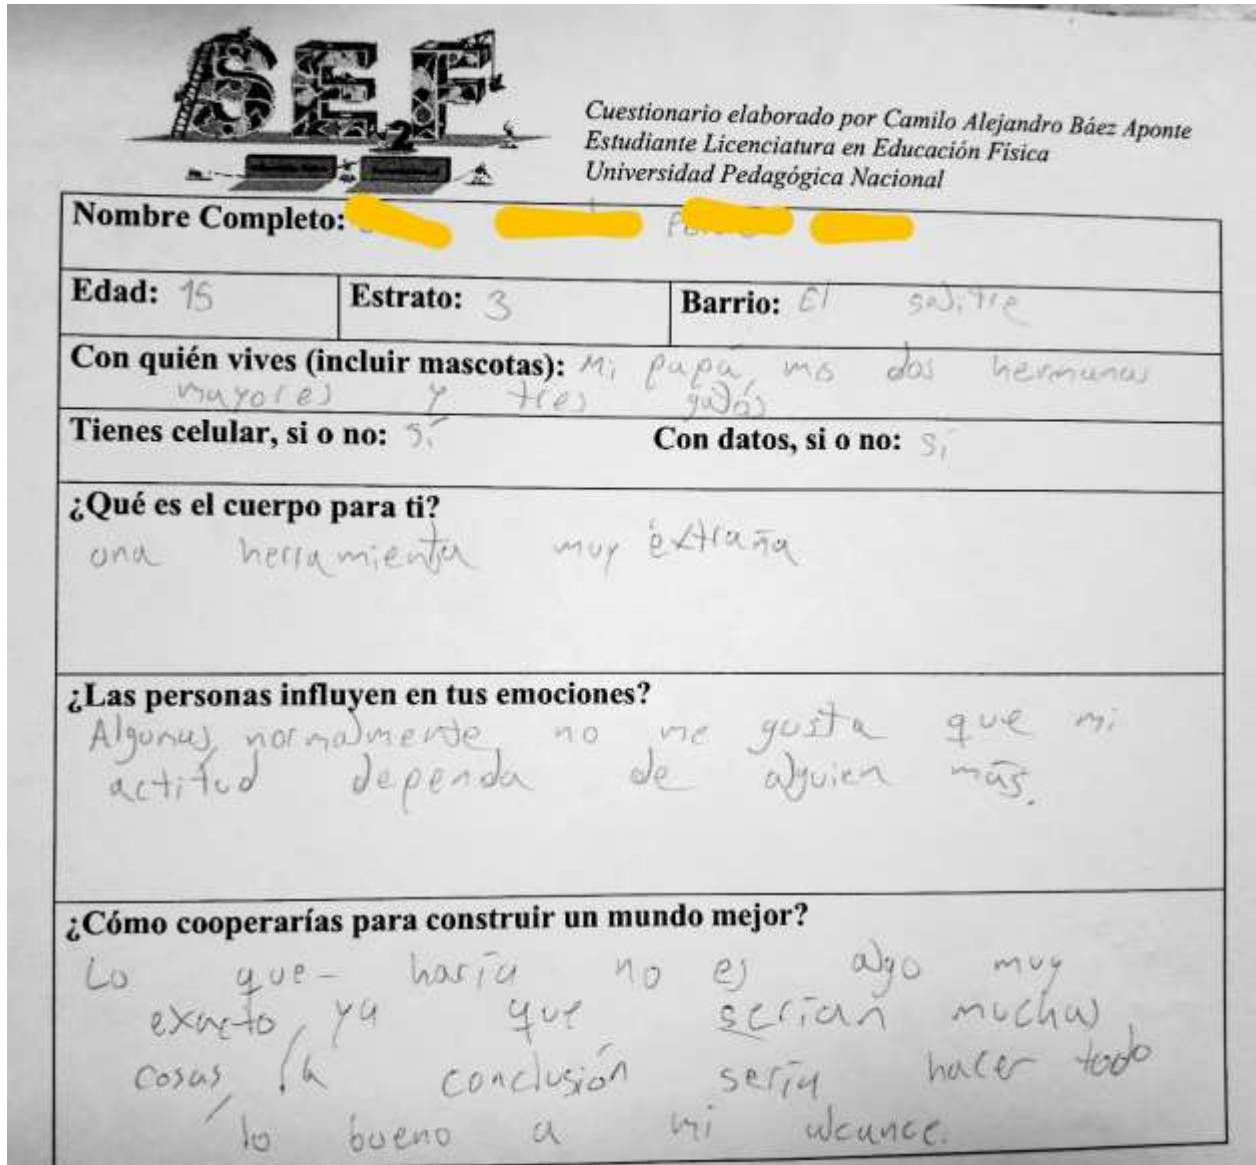 SEF
2
Cuestionario elaborado por Camilo Alejandro Báez Aponte
Estudiante Licenciatura en Educación Física
Universidad Pedagógica Nacional
Nombre Completo:
Edad: 15 Estrato: 3 Barrio: El salitre
Con quién vives (incluir mascotas): Mi papá, mis dos hermanas
mayores y tres gatos
Tienes celular, si o no: sí Con datos, si o no: sí
¿Qué es el cuerpo para ti?
una herramienta muy extraña
¿Las personas influyen en tus emociones?
Algunas, normalmente no me gusta que mi
actitud dependa de alguien más.
¿Cómo cooperarías para construir un mundo mejor?
Lo que haría no es algo muy
exacto, ya que serían muchas
cosas, la conclusión sería hacer todo
lo bueno a mi alcance.